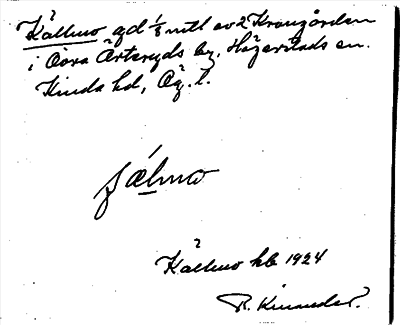 Källmo gd 1/8 mtl av 2 Krongården
i Östra Örteryds by, Hägerstads sn.
Kinda hd, Ög. l.
sälmo
Källmo kb 1924
R. Kinander.